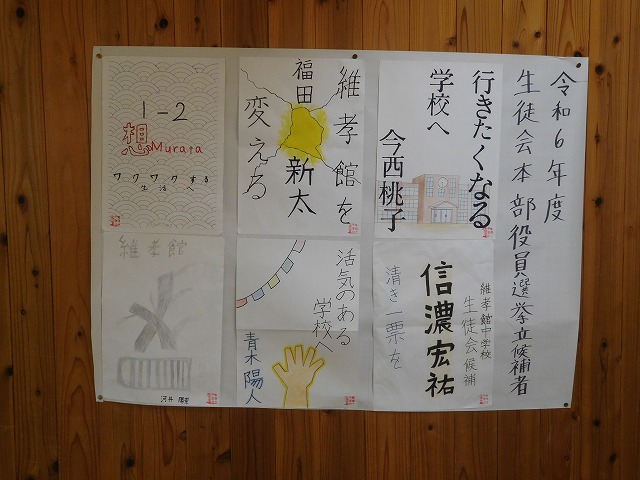 令和6年度
生徒会本部役員選挙立候補者
行きたくなる
学校へ
今西桃子
維孝館を
変える
福田
新太
1-2
想
Murata
ワクワクする
生活へ
維孝館中学校
生徒会候補
信濃宏祐
清き一票を
活気のある
学校へ
青木陽人
維孝館
河井